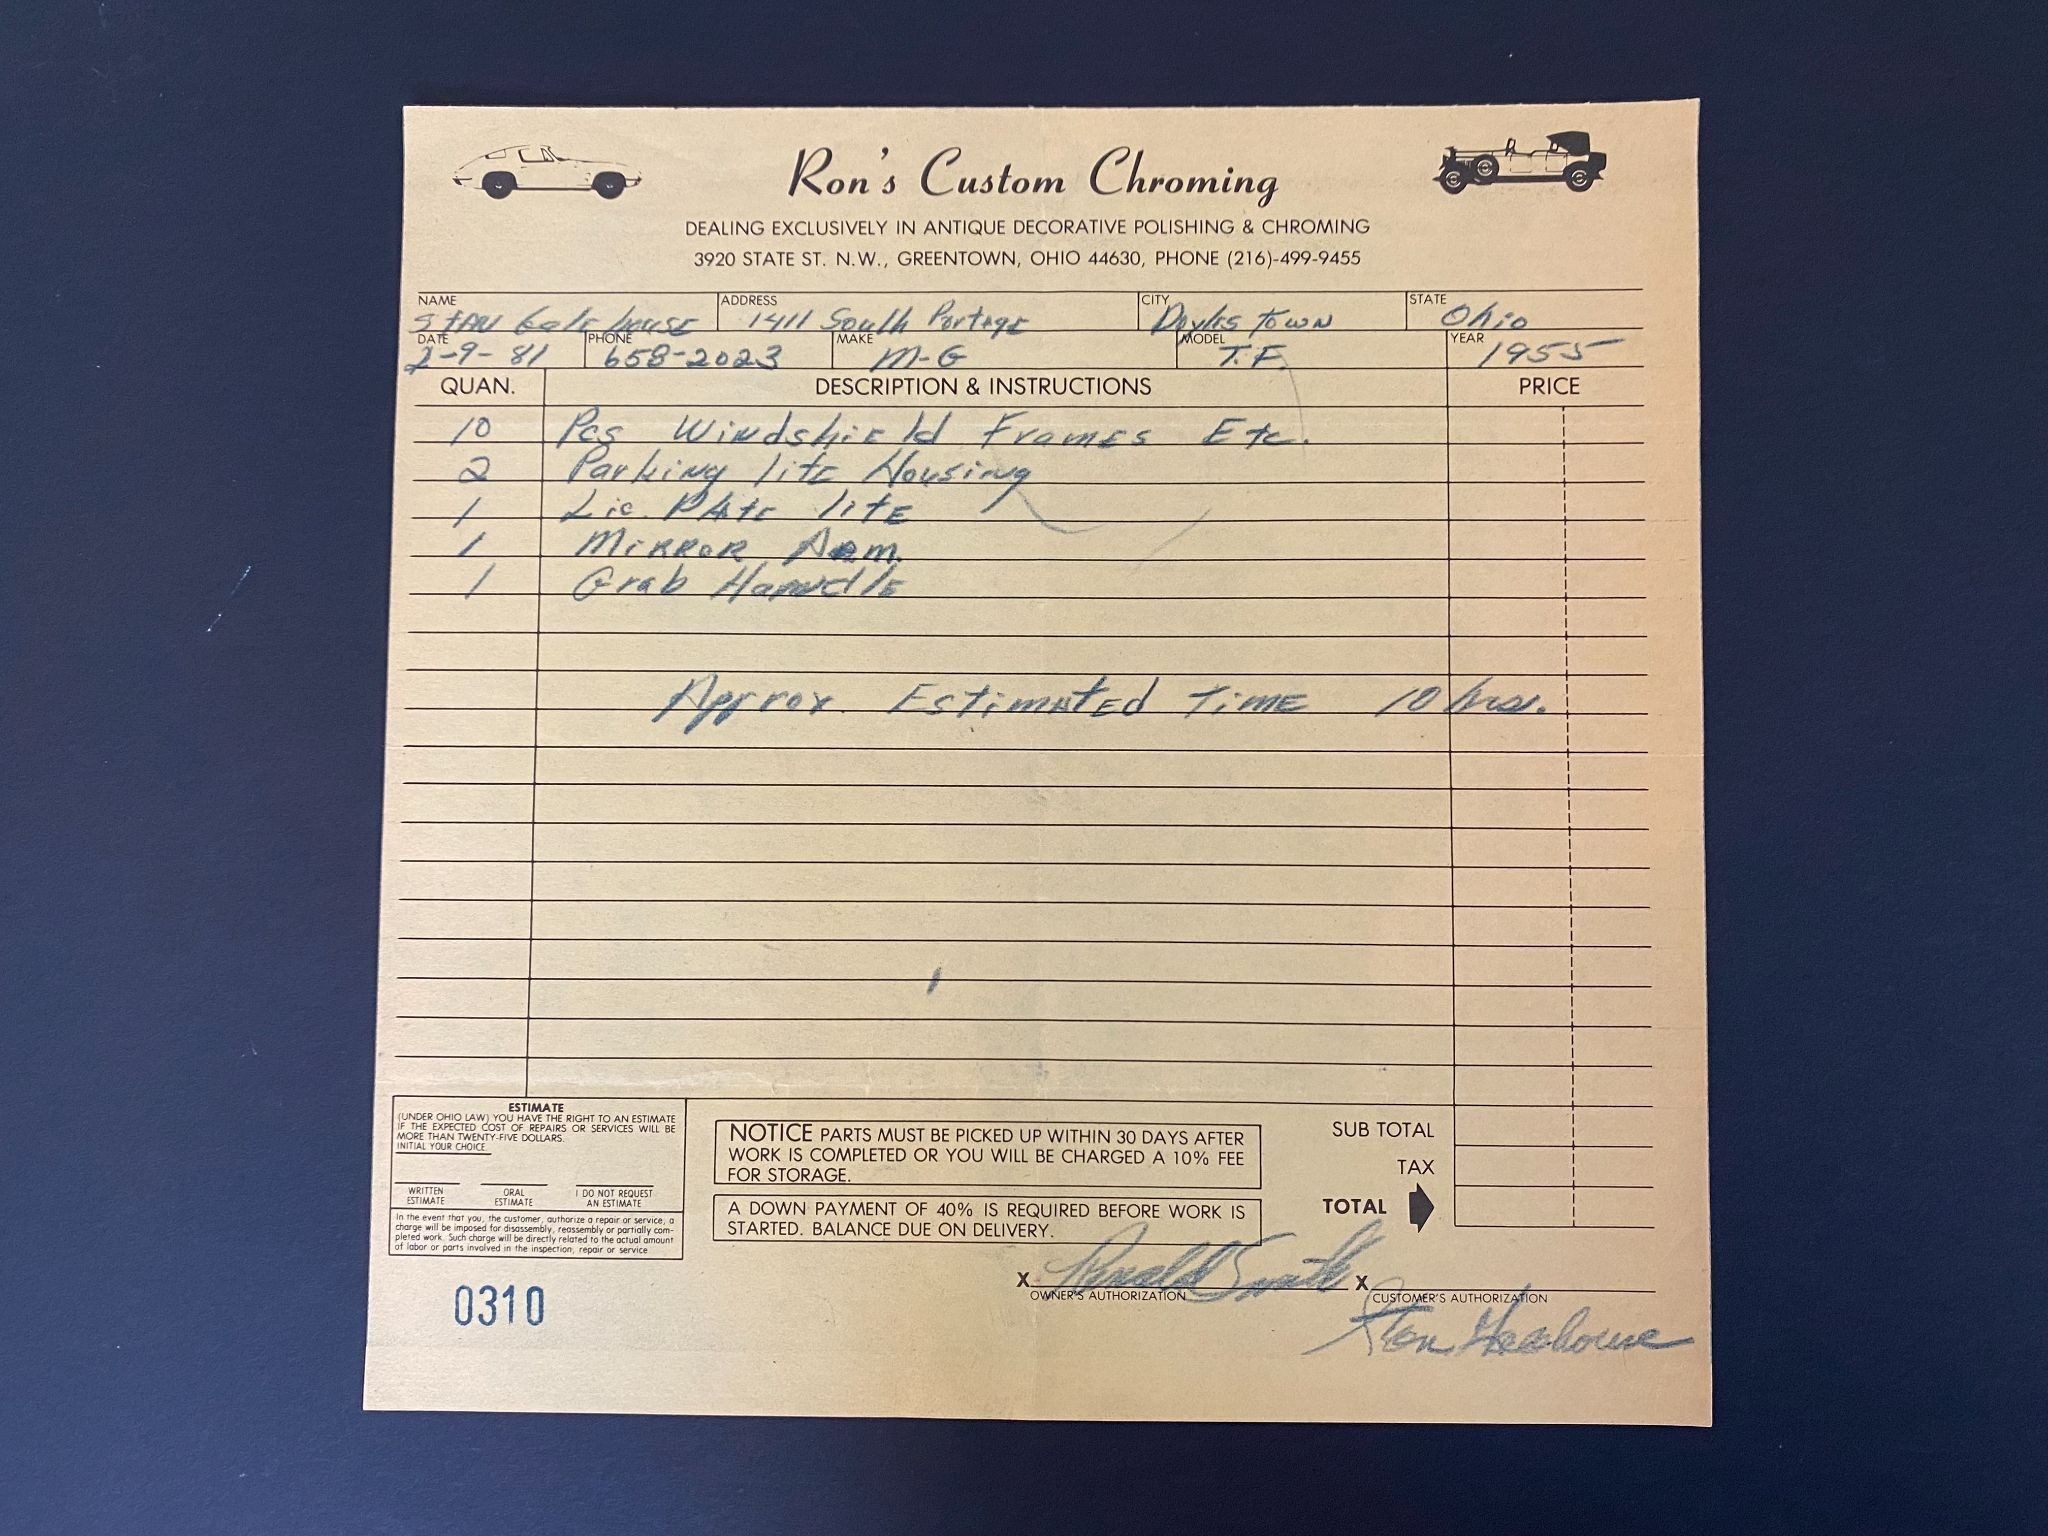 Ron's Custom Chroming
DEALING EXCLUSIVELY IN ANTIQUE DECORATIVE POLISHING & CHROMING
3920 STATE ST. N.W., GREENTOWN, OHIO 44630, PHONE (216)-499-9455
NAME ADDRESS CITY STATE
STAN Gatehouse 1411 South Portage Doylestown Ohio
DATE PHONE MAKE MODEL YEAR
2-9-81 658-2023 M-G T.F. 1955
QUAN. DESCRIPTION & INSTRUCTIONS PRICE
10 Pcs Windshield Frames Etc.
2 Parking lite Housing
1 Lic. Plate lite
1 Mirror Arm.
1 Grab Handle
Approx. Estimated Time 10 hrs.
ESTIMATE
(UNDER OHIO LAW) YOU HAVE THE RIGHT TO AN ESTIMATE
IF THE EXPECTED COST OF REPAIRS OR SERVICES WILL BE
MORE THAN TWENTY-FIVE DOLLARS.
INITIAL YOUR CHOICE.
WRITTEN ESTIMATE
ORAL ESTIMATE
I DO NOT REQUEST AN ESTIMATE
In the event that you, the customer, authorize a repair or service, a
charge will be imposed for disassembly, reassembly or partially com-
pleted work. Such charge will be directly related to the actual amount
of labor or parts involved in the inspection, repair or service
NOTICE PARTS MUST BE PICKED UP WITHIN 30 DAYS AFTER
WORK IS COMPLETED OR YOU WILL BE CHARGED A 10% FEE
FOR STORAGE.
A DOWN PAYMENT OF 40% IS REQUIRED BEFORE WORK IS
STARTED. BALANCE DUE ON DELIVERY.
SUB TOTAL
TAX
TOTAL
X Ronald Smith X
OWNER'S AUTHORIZATION CUSTOMER'S AUTHORIZATION
0310
Stan